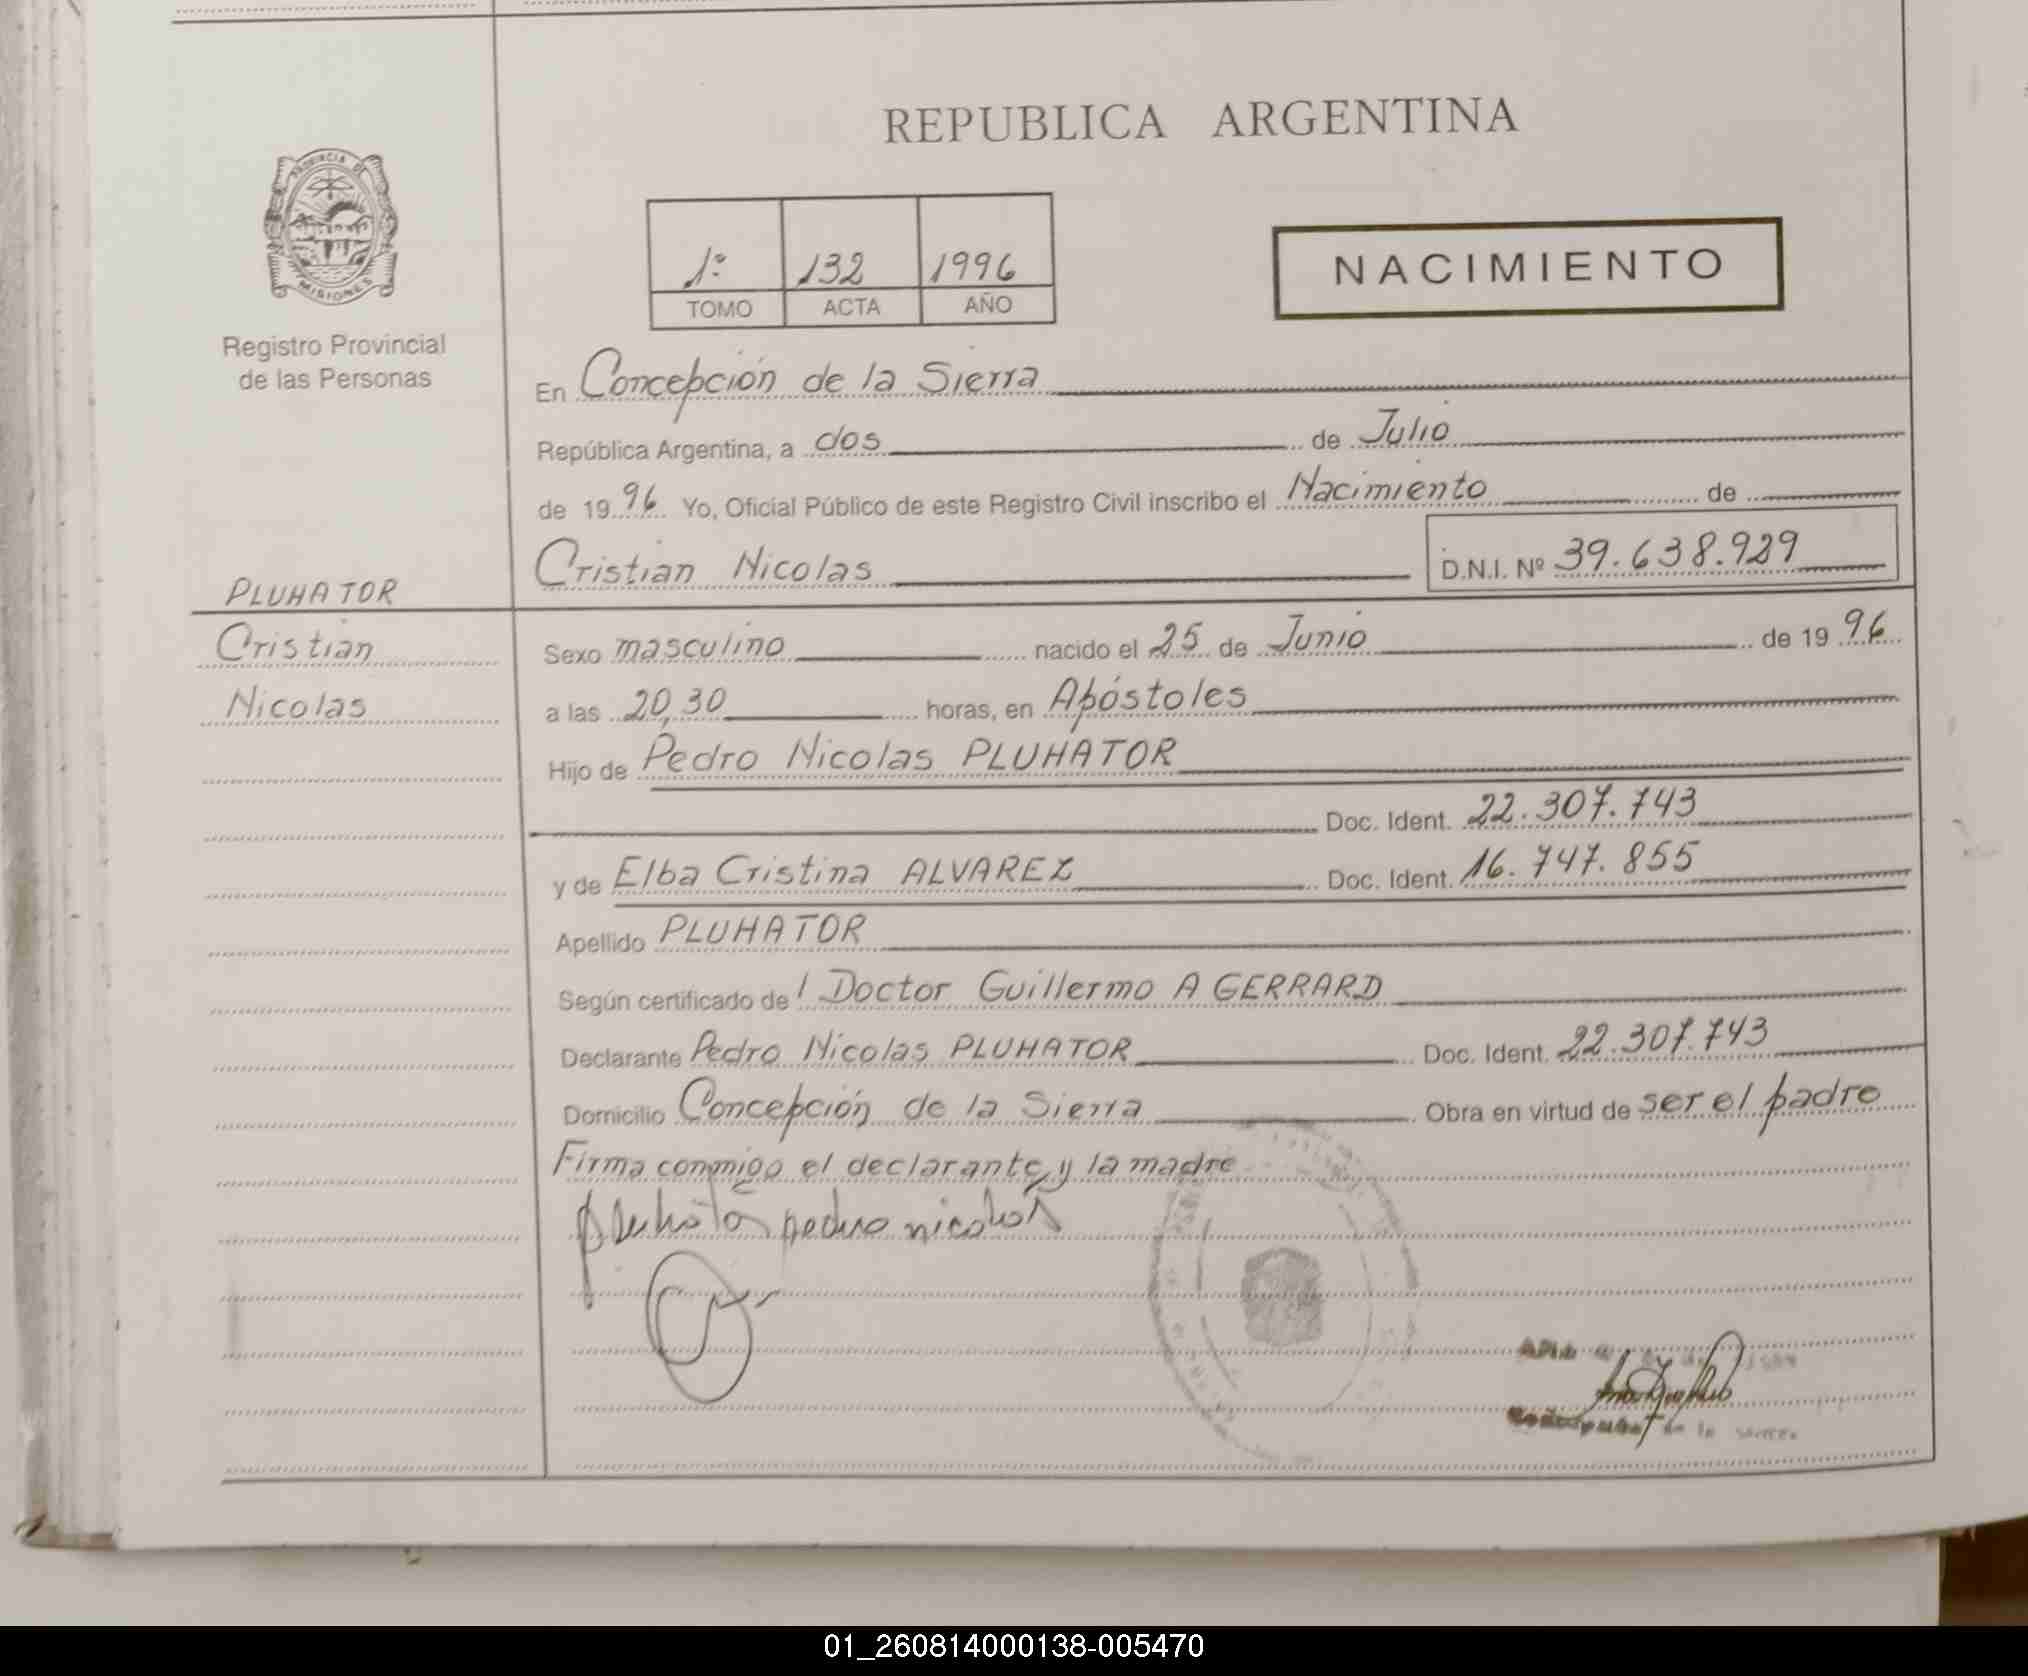 REPUBLICA ARGENTINA
PROVINCIA DE MISIONES
Registro Provincial
de las Personas
1º 132 1996
TOMO ACTA AÑO
NACIMIENTO
En Concepción de la Sierra
República Argentina, a dos de Julio
de 1996 Yo, Oficial Público de este Registro Civil inscribo el Nacimiento de
Cristian Nicolas D.N.I. Nº 39.638.929
PLUHATOR
Cristian
Nicolas
Sexo masculino nacido el 25 de Junio de 1996
a las 20,30 horas, en Apóstoles
Hijo de Pedro Nicolas PLUHATOR
Doc. Ident. 22.307.743
y de Elba Cristina ALVAREZ Doc. Ident. 16.747.855
Apellido PLUHATOR
Según certificado del Doctor Guillermo A GERRARD
Declarante Pedro Nicolas PLUHATOR Doc. Ident. 22.307.743
Domicilio Concepción de la Sierra Obra en virtud de ser el padre
Firma conmigo el declarante y la madre
pluhator pedro nicolas
de la Sierra
01_260814000138-005470